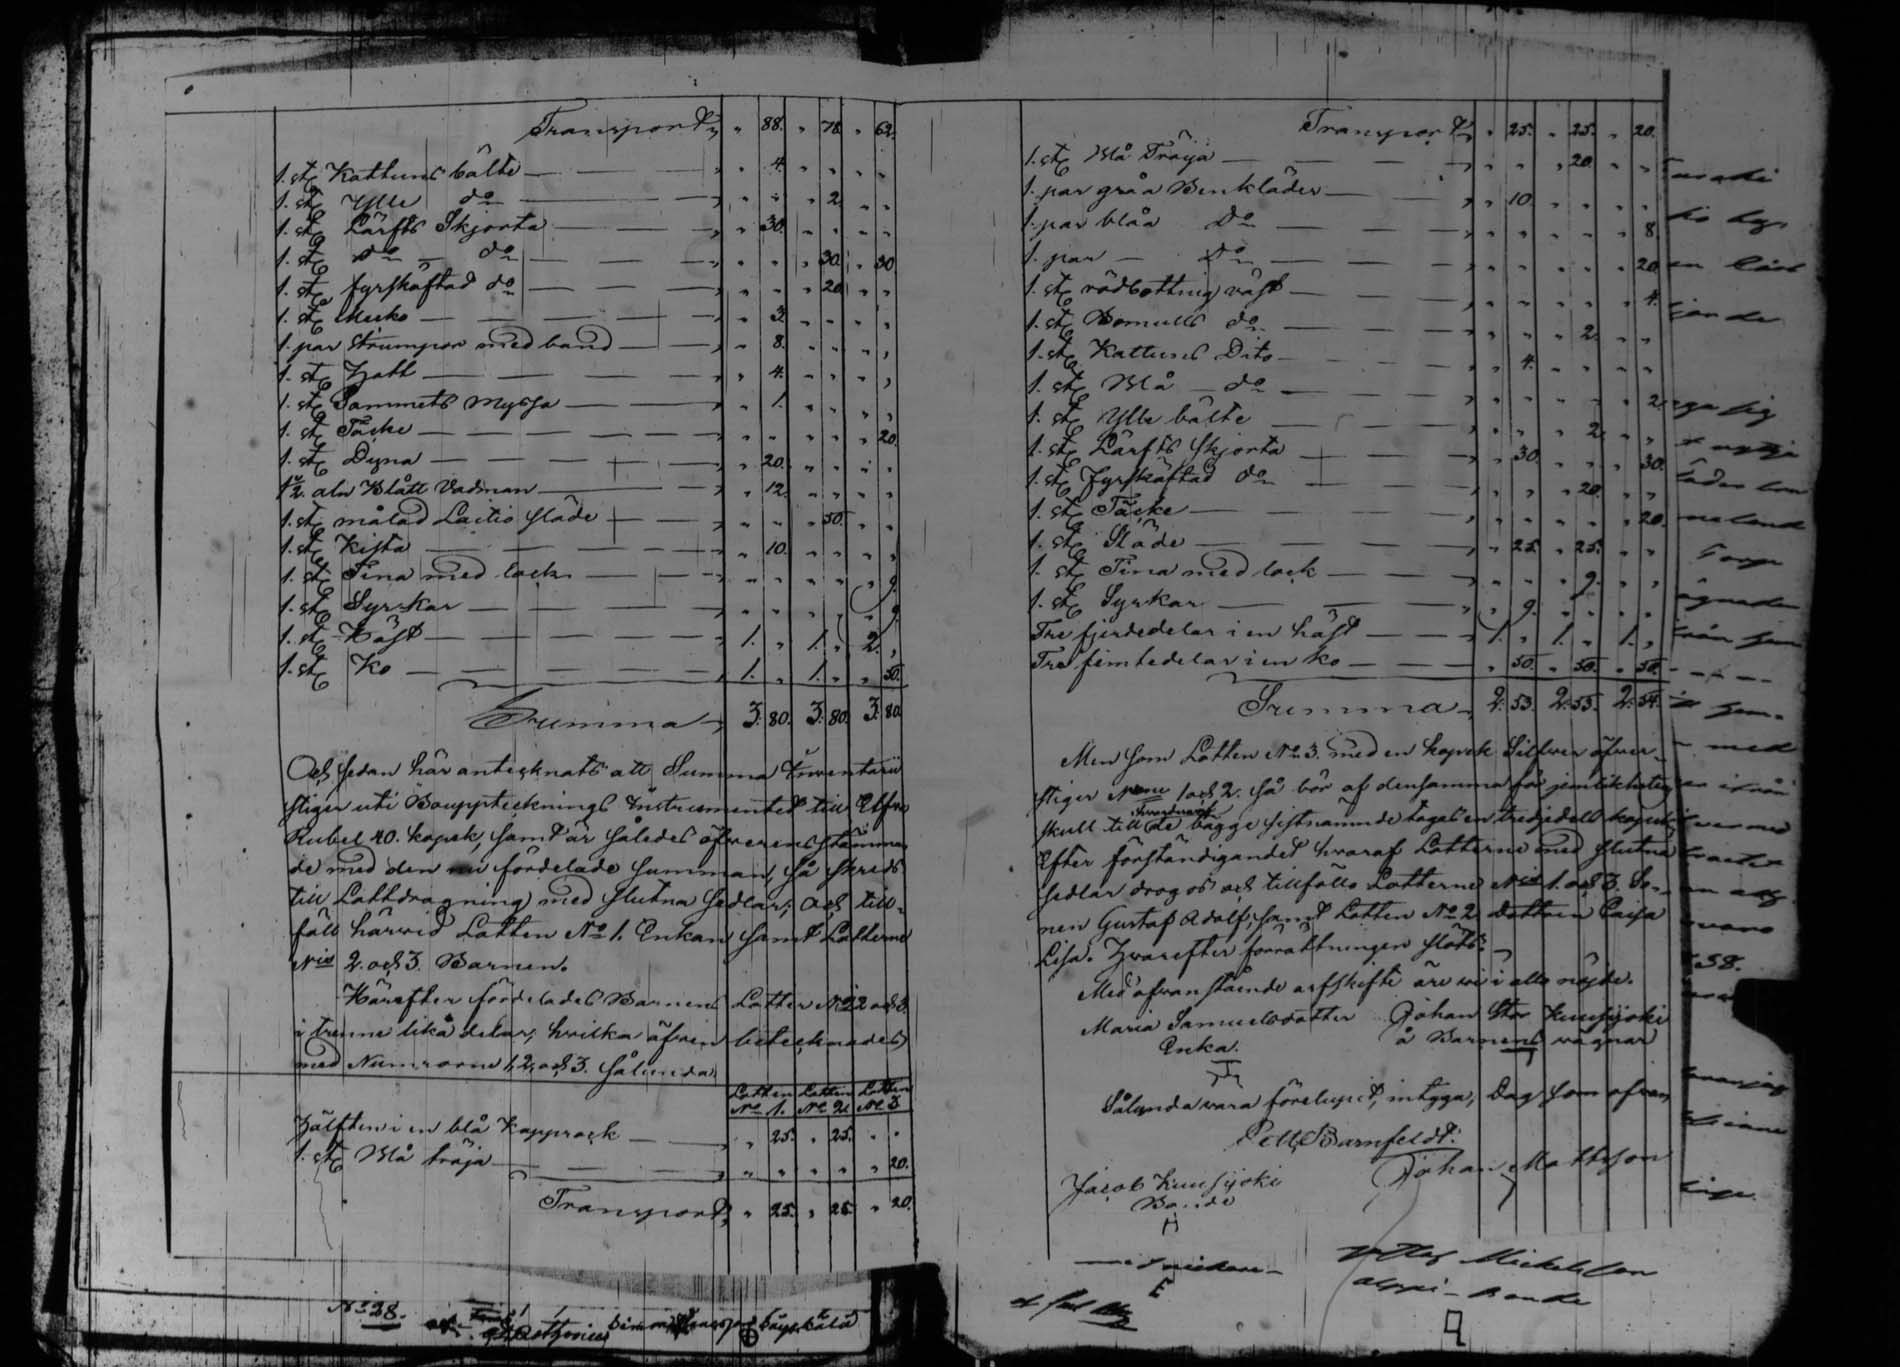 Transport, " 88. " 78. " 62.
1. st. Kattuns bälte " 4. " " " "
1. st. Ylle do " " " 2. " "
1. st. Lärfts Skjorta " 30. " " " "
1. st. do do " " " 30. " 30.
1. st. fyrskäftad do " " " 20. " "
1. st. " 3. " " " "
1. par Strumpor med band " 8. " " " "
1. st. Hatt " 4. " " " "
1. st. Sammets Myssa " 1. " " " "
1. st. Täcke " " " " " 20.
1. st. Dyna " 20. " " " "
aln Blått Vadman " 12. " " " "
1. st. målad Laitio släde " " " 50. " "
1. st. Kista " 10. " " " "
1. st. Tina med lock " " " " " 9.
1. st. Syrkar " " " " " 9.
1. st. Häst 1. " 1. " 2. "
1. st. Ko 1. " 1. " " 50.
Summa 3. 80. 3. 80. 3. 80.
Och sedan här antecknats att Summa Inventarii
stiger uti Bouppteknings Instrumentet till Elfva
Rubel 40. kopek, samt är således öfverensstämman-
de med den nu fördelade summan, så skreds
till Lottdragning med slutna sedlar; och till-
föll härvid Lotten No 1. Enkan samt Lotterne
Nris 2. och 3. Barnen.
Härefter fördelades Barnens Lotter No 2 och 3.
i trenne lika delar, hvilka äfven betecknades
med Numrorne 1, 2, och 3. Sålunda
Lotten No 1. Lotten No 2. Lotten No 3
Hälften i en blå Kapprock " 25. " 25. " "
1. st. Blå tröja " " " " " 20.
Transport, " 25. " 25. " 20.
No 328.
Transport, " 25. " 25. " 20.
1. st. Blå Tröija " " " 20. " "
1. par gråa Benkläder " 10. " " " "
1. par blåa Do " " " " " 8.
1. par — Do " " " " " 20.
1. st. rödbottnig väst " " " " " 4.
1. st. Bomulls do " " " 2. " "
1. st. Kattuns Dito " 4. " " " "
1. st. Blå do " " " " " 2.
1. st. Ylle bälte " " " 2. " "
1. st. Lärfts Skjorta " 30. " " " 30.
1. st. fyrskäftad do " " " 20. " "
1. st. Täcke " " " " " 20.
1. st. Släde " 25. " 25. " "
1. st. Tina med lock " " " 9. " "
1. st. Syrkar " 9. " " " "
Tre fjerdedelar i en häst 1. " 1. " 1. "
Tre femtedelar i en ko " 50. " 50. " 50.
Summa 2. 53. 2. 53. 2. 54.
Men som Lotten No 3. med en kopek Silfver öfver-
stiger 1 och 2. så bör af densamma för jemlikhetens
skull till de bägge sistnämnde tages en tredjedels kopek;
Efter förständigandet hvaraf Lotterne med slutna
sedlar drogos och tillföllo Lotterne Nris 1. och 3. So-
nen Gustaf Adolf, samt Lotten No 2 Dottren Caisa
Lisa. Hvarefter förrättningen slöts.
Med ofvanstående arfskifte äre vi i allo nöjde.
Maria Samuelsdotter Johan Stor Kuusijoki
Enka. å Barnens vägnar
Sålunda vara förelupit, intyga, Dag som ofvan
Pett. Barnfeldt.
Johan Mattsson
Jacob Kuusijoki
Bonde
Michelsson
Bonde